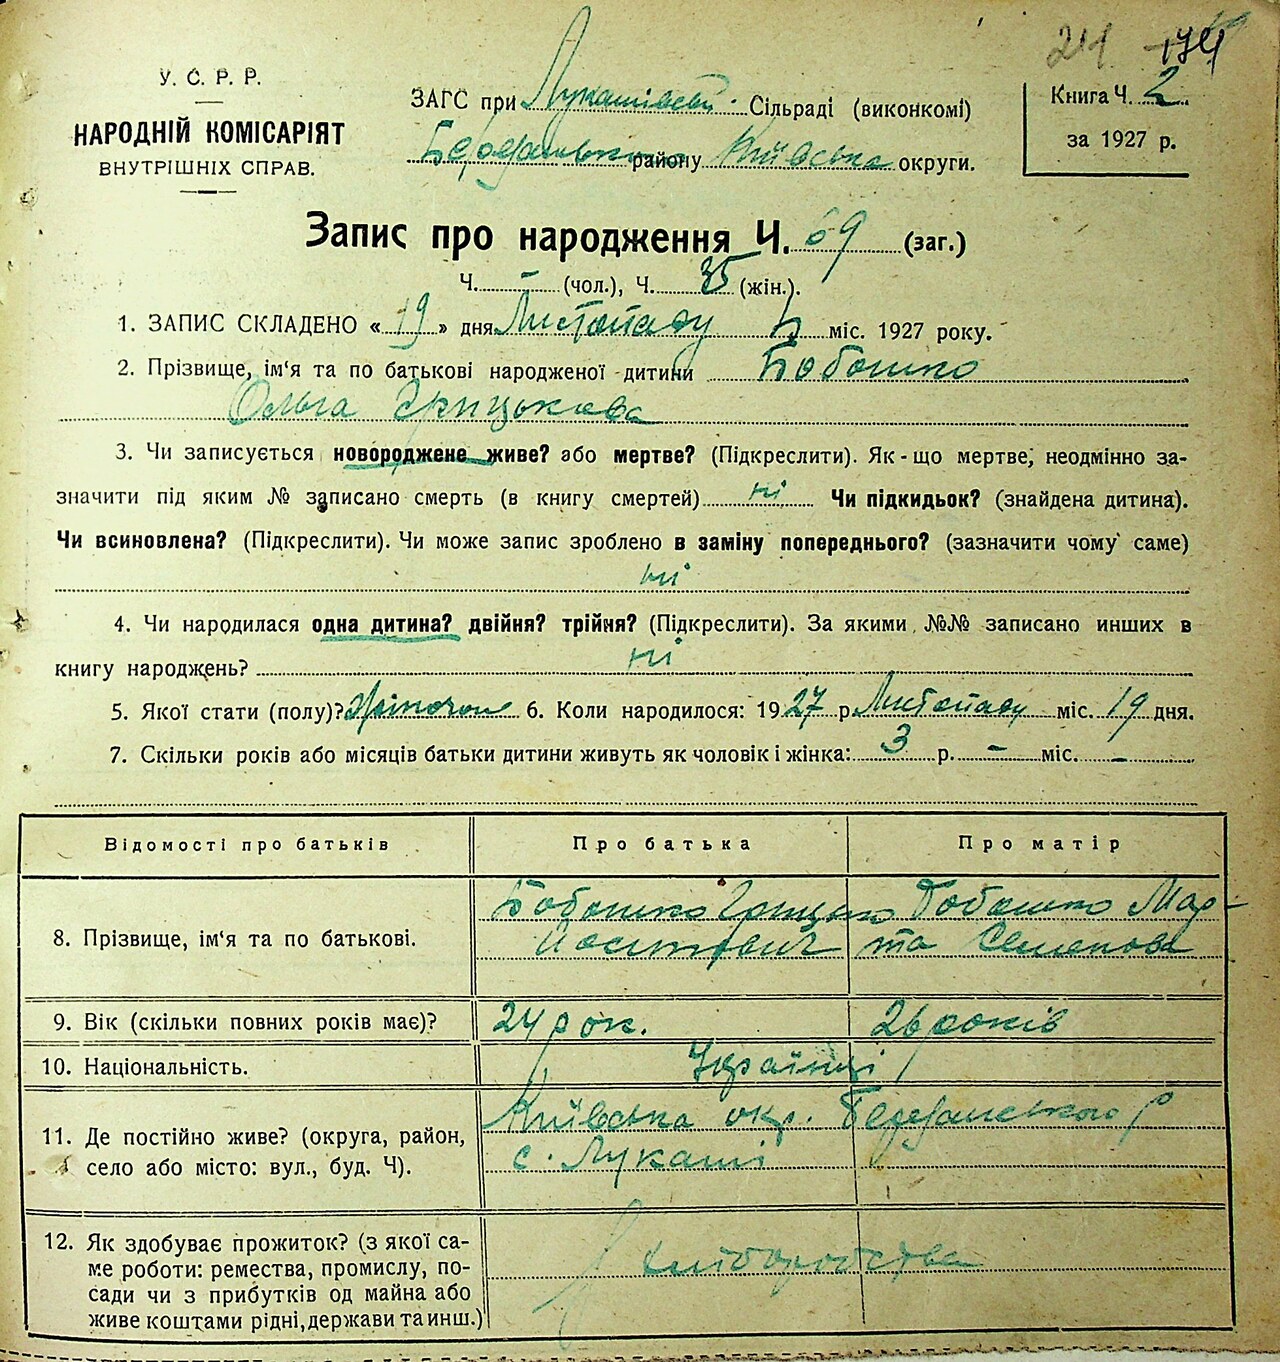 241 174
У. С. Р. Р.
НАРОДНІЙ КОМІСАРІЯТ
ВНУТРІШНІХ СПРАВ.
ЗАГС при Лукашівській Сільраді (виконкомі)
Березанського району Київська округи.
Книга Ч. 2
за 1927 р.
Запис про народження Ч. 69 (заг.)
Ч. - (чол.), Ч. 35 (жін.).
1. ЗАПИС СКЛАДЕНО «19» дня Листопаду міс. 1927 року.
2. Прізвище, ім'я та по батькові народженої дитини Бобошко
Ольга Грицькова
3. Чи записується новороджене живе? або мертве? (Підкреслити). Як-що мертве, неодмінно за-
значити під яким № записано смерть (в книгу смертей) ні Чи підкидьок? (знайдена дитина).
Чи всиновлена? (Підкреслити). Чи може запис зроблено в заміну попереднього? (зазначити чому саме)
ні
4. Чи народилася одна дитина? двійня? трійня? (Підкреслити). За якими №№ записано инших в
книгу народжень? ні
5. Якої стати (полу)? Жіночої 6. Коли народилося: 1927 р. Листопаду міс. 19 дня.
7. Скільки років або місяців батьки дитини живуть як чоловік і жінка: 3 р. - міс. -
Відомості про батьків Про батька Про матір
8. Прізвище, ім'я та по батькові. Бобошко Грицько Бобошко Мар-
та Семенова
9. Вік (скільки повних років має)? 24 рок. 26 років
10. Національність. Українці
11. Де постійно живе? (округа, район, Київська окр. Березанського р
село або місто: вул., буд. Ч). с. Лукаші
12. Як здобуває прожиток? (з якої са-
ме роботи: ремества, промислу, по- Хліборобства
сади чи з прибутків од майна або
живе коштами рідні, держави та инш.)